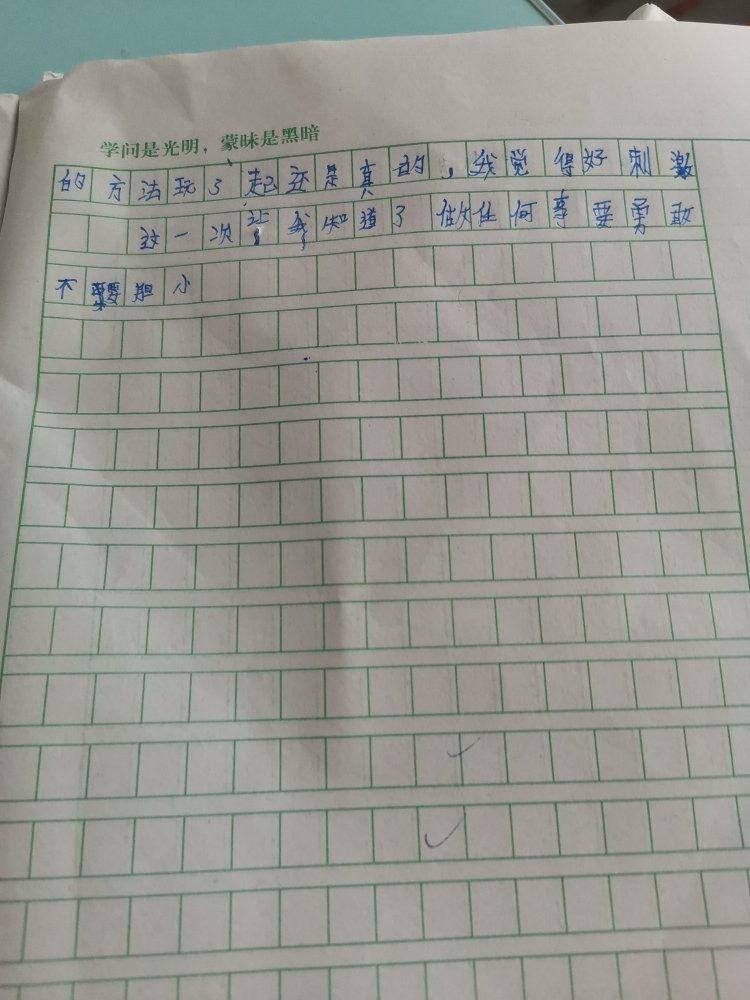 学问是光明，蒙昧是黑暗
的方法玩了起来是真的，我觉得好刺激
这一次让我知道了做任何事要勇敢
不要胆小